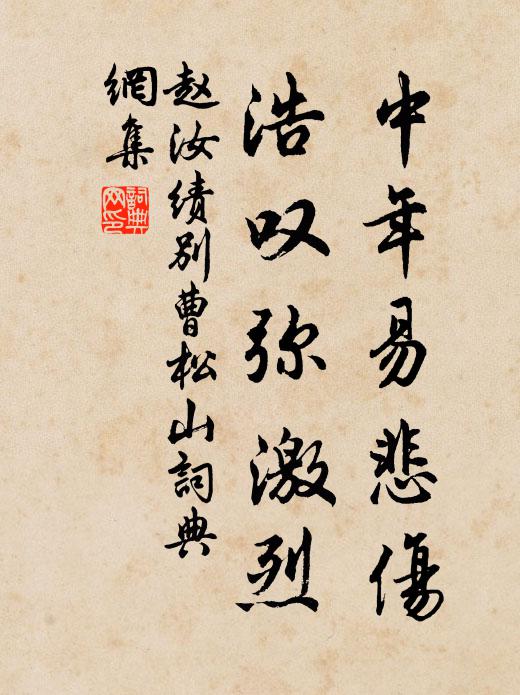 中年易悲傷
浩叹弥激烈
赵汝绩别曹松山詞典
網集
詞典網印